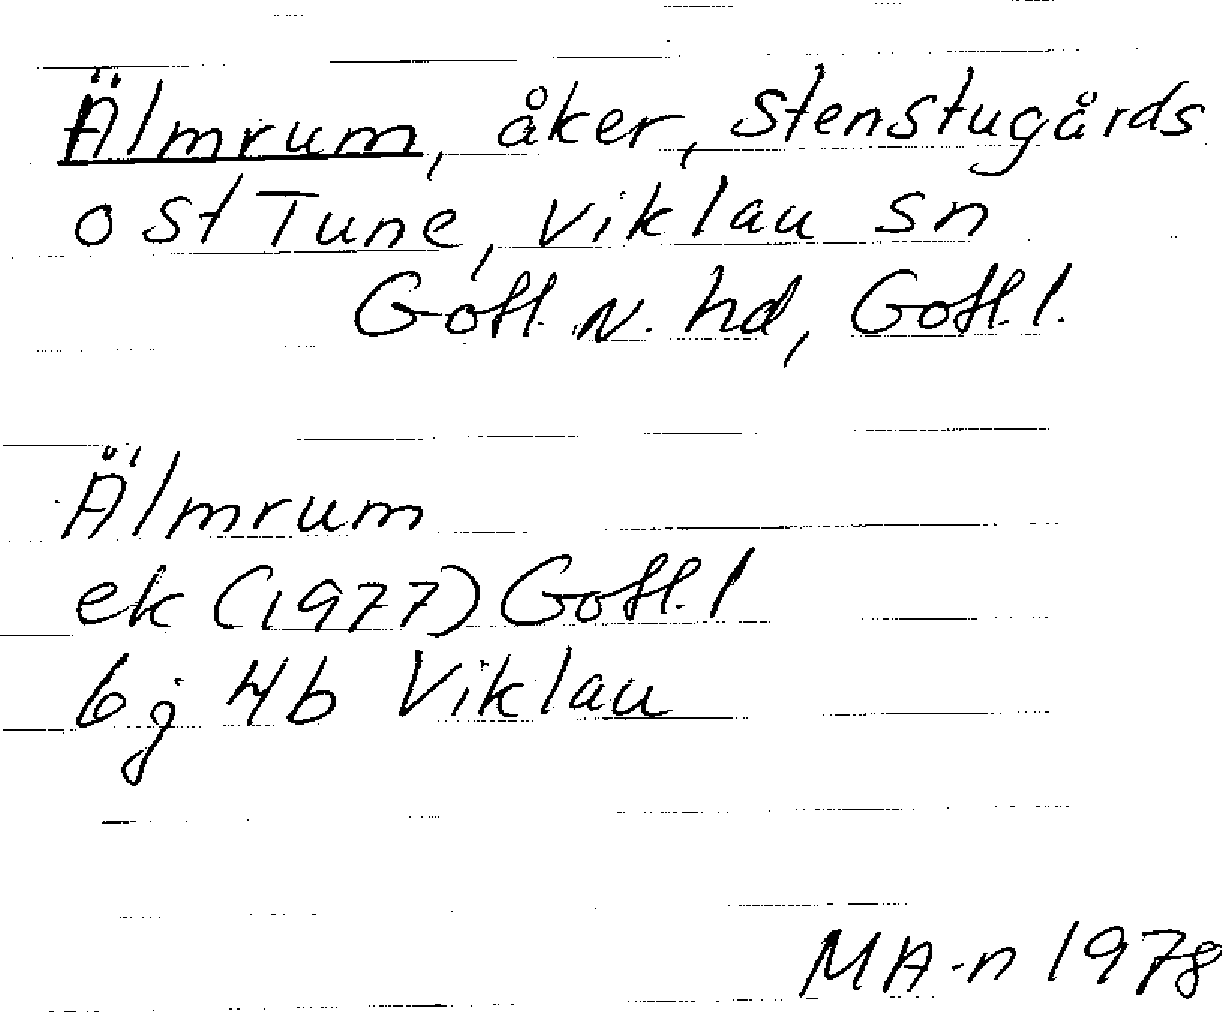 Älmrum, åker, Stenstugårds
o St Tune, Viklau sn
Gotl. N. hd, Gotl. l.
Älmrum
ek (1977) Gotl. l
bj 4b Viklau
MA-n 1978